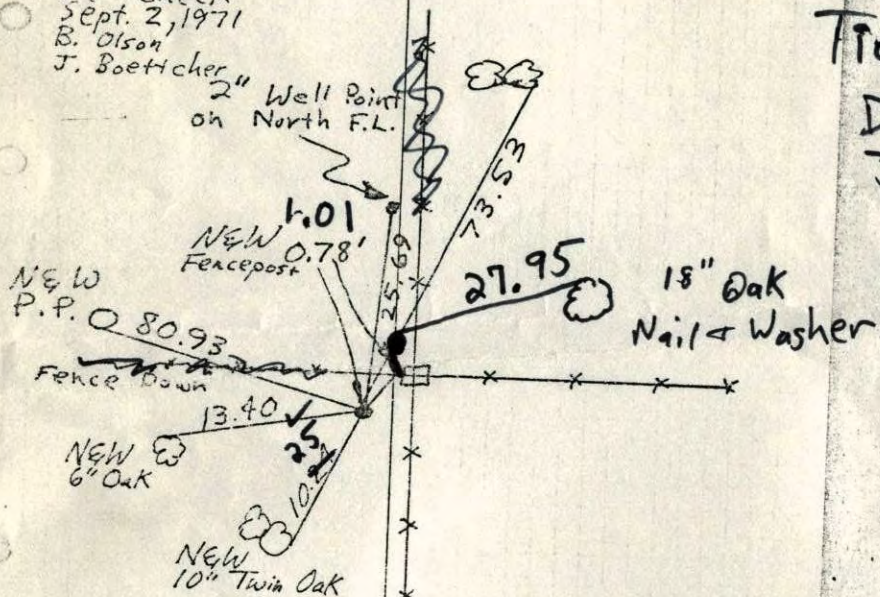 Sept. 2, 1971
B. Olson
J. Boetticher
2" Well Point
on North F.L.
73.53
1.01
N&W
Fencepost
0.78'
25.69
27.95
18" Oak
Nail & Washer
N&W
P.P.
80.93
Fence Down
13.40
25
N&W
6" Oak
N&W
10" Twin Oak